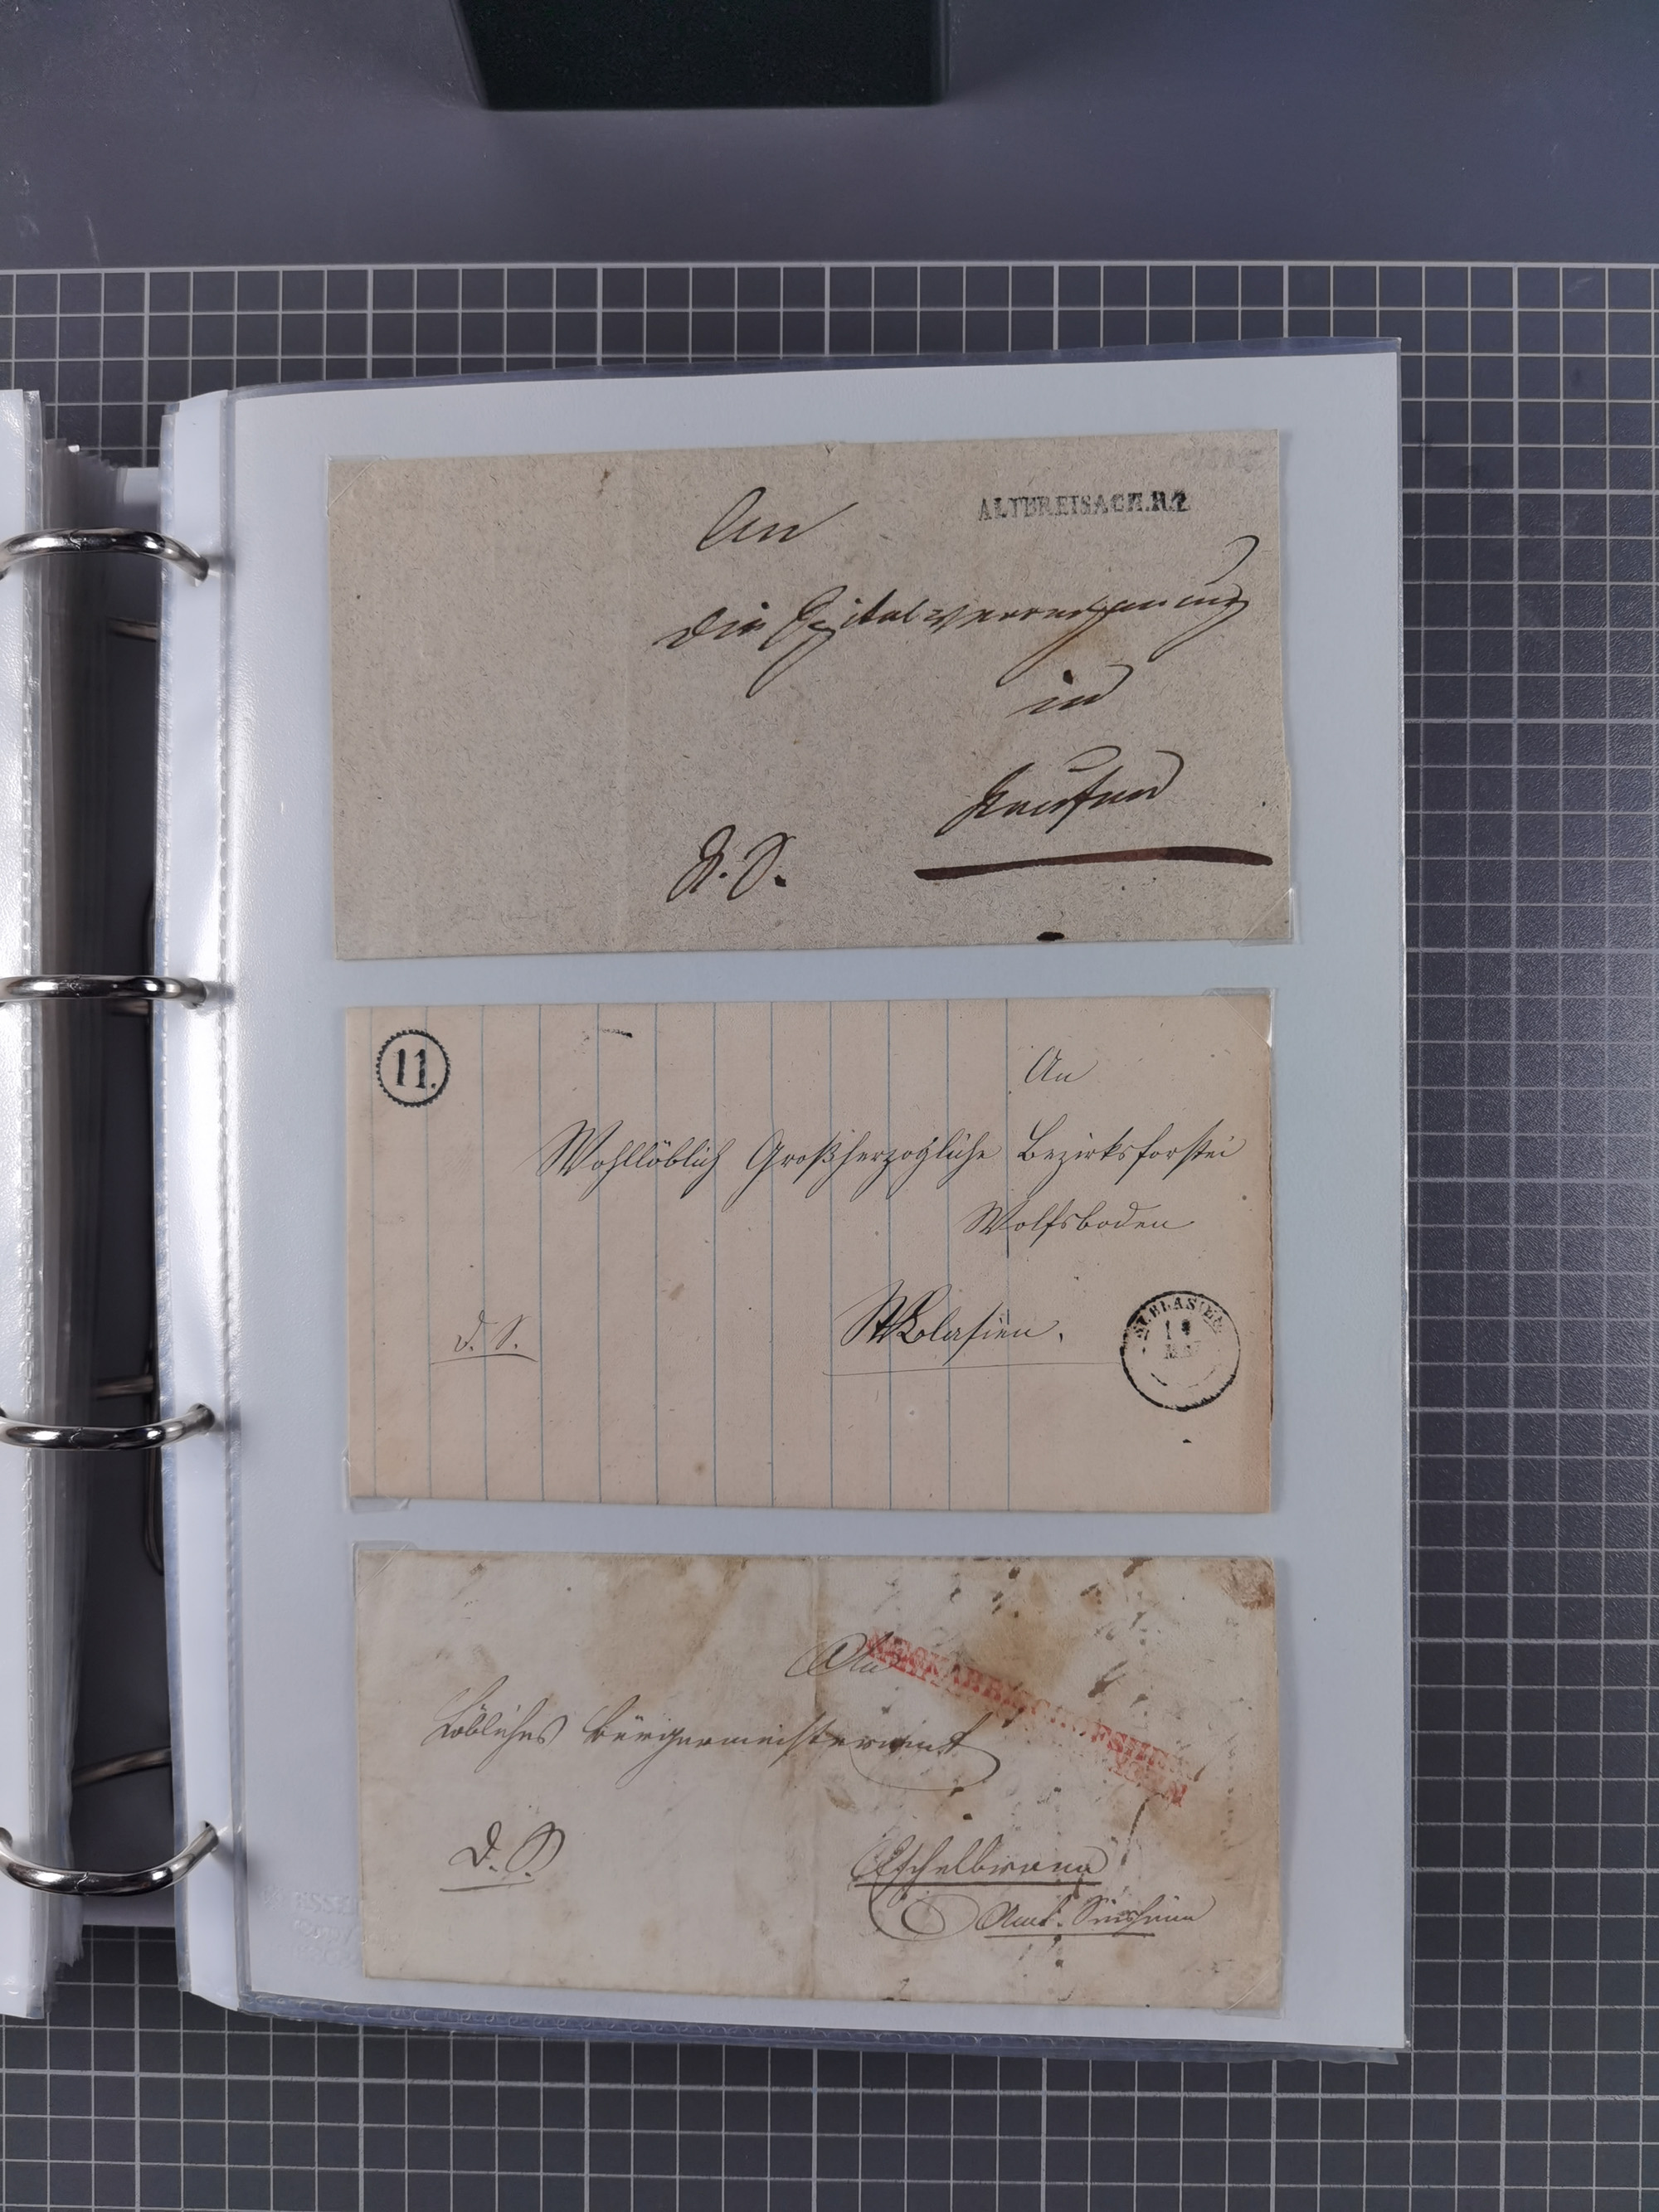 ALTBREISACH.R.2.
An
die Spitalverrechnung
in
D. S.
11.
An
Wohllöblich Großherzogliche Bezirksforstei
Wolfsboden
St Blasien.
D. S.
ST. BLASIEN
An
NECKARBISCHOFSHEIM
Löbliches Bürgermeisteramt
D. S.
Eschelbronn
Amt. Sinsheim